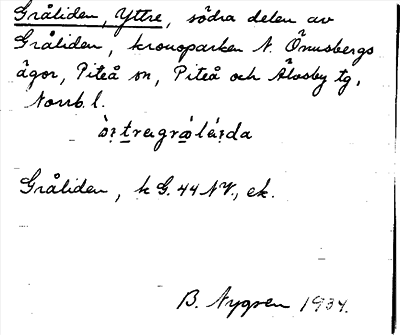 Gråliden, Yttre, södra delen av
Gråliden, kronoparken N. Önusbergs
ägor, Piteå sn, Piteå och Älvsby tg,
Norrb. l.
Gråliden, k G. 44 NV., ek.
B. Nygren 1934.